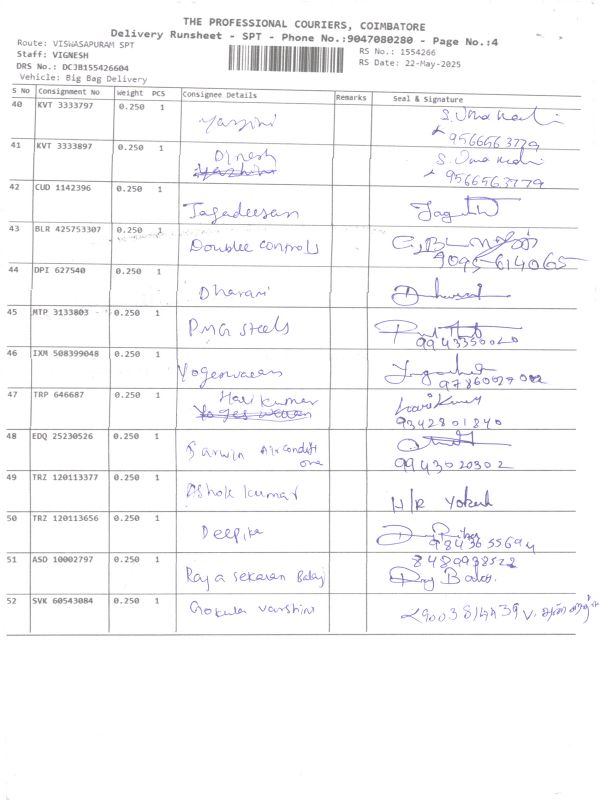 THE PROFESSIONAL COURIERS, COIMBATORE
Delivery Runsheet - SPT - Phone No.:9047080280 - Page No.:4
Route: VISWASAPURAM SPT
Staff: VIGNESH
DRS No.: DCJB155426604
Vehicle: Big Bag Delivery
RS No.: 1554266
RS Date: 22-May-2025
S No Consignment No Weight PCS Consignee Details Remarks Seal & Signature
40 KVT 3333797 0.250 1 Yazhini S. Uma
9566563779
41 KVT 3333897 0.250 1 Dinesh S. Uma
9566563779
42 CUD 1142396 0.250 1 Jagadeesan
43 BLR 425753307 0.250 1 Doublee controls
9095-614065
44 DPI 627540 0.250 1 Dharani
45 MTP 3133803 0.250 1 PMG Steels
46 IXM 508399048 0.250 1 Yogeswaran
47 TRP 646687 0.250 1 Hari Kumar
9342801840
48 EDQ 25230526 0.250 1 Sarwin Air
9943020302
49 TRZ 120113377 0.250 1 Ashok kumar H/R Yokesh
50 TRZ 120113656 0.250 1 Deepika
51 ASD 10002797 0.250 1 Raja sekaran Balaji
52 SVK 60543084 0.250 1 Gokula varshini